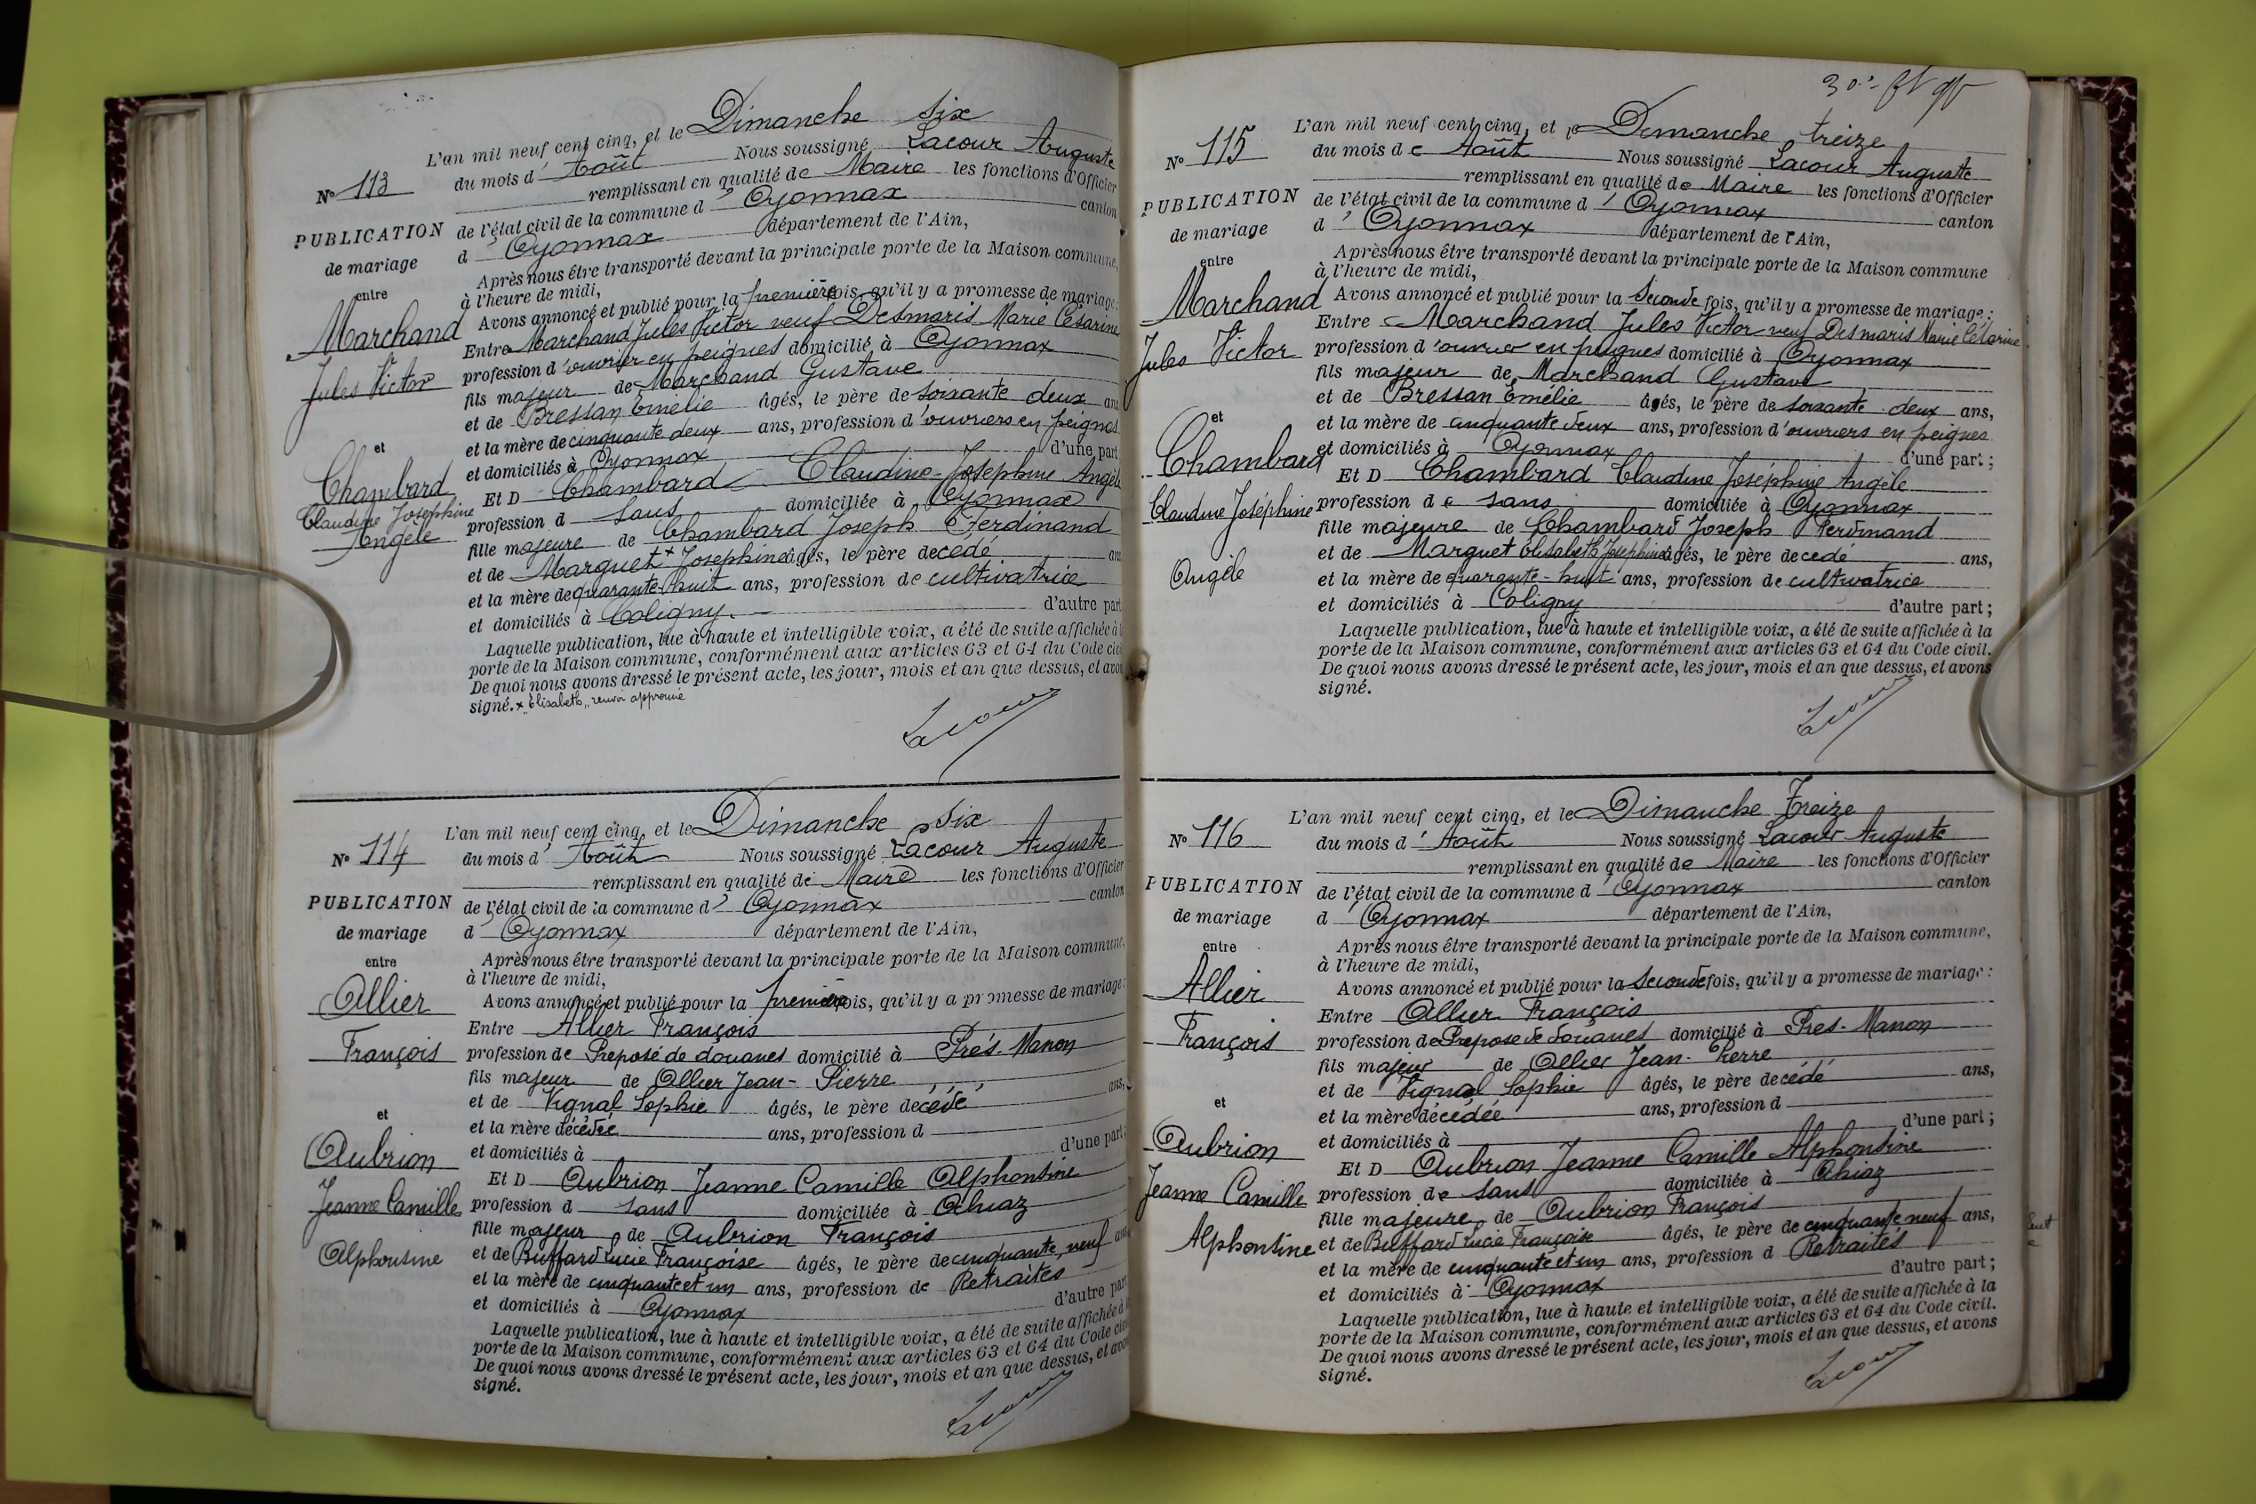 L'an mil neuf cent cinq, et le Dimanche six
du mois d' Août Nous soussigné Lacour Auguste
N° 113
remplissant en qualité de Maire les fonctions d'Officier
PUBLICATION
de l'état civil de la commune d' Oyonnax canton
de mariage
d' Oyonnax département de l'Ain,
Après nous être transporté devant la principale porte de la Maison commune,
entre
à l'heure de midi,
Avons annoncé et publié pour la première fois, qu'il y a promesse de mariage:
Marchand
Entre Marchand Jules Victor veuf Desmaris Marie Césarine
profession d'ouvrier en peignes domicilié à Oyonnax
Jules Victor
fils majeur de Marchand Gustave
et de Bressan Emélie âgés, le père de soixante deux ans
et la mère de cinquante deux ans, profession d'ouvriers en peignes
et
et domiciliés à Oyonnax d'une part
Chambard
Et D Chambard Claudine-Joséphine Angèle
Claudine Joséphine
profession d sans domiciliée à Oyonnax
Angèle
fille majeure de Chambard Joseph Ferdinand
et de Marguet x Joséphine âgés, le père decédé ans
et la mère de quarante-huit ans, profession de cultivatrice
et domiciliés à Coligny. d'autre part
Laquelle publication, lue à haute et intelligible voix, a été de suite affichée à la
porte de la Maison commune, conformément aux articles 63 et 64 du Code civil
De quoi nous avons dressé le présent acte, les jour, mois et an que dessus, et avons
signé. x "Elisabeth" renvoi approuvé
Lacour
L'an mil neuf cent cinq, et le Dimanche six
N° 114
du mois d' Août Nous soussigné Lacour Auguste
remplissant en qualité de Maire les fonctions d'Officier
PUBLICATION
de l'état civil de la commune d' Oyonnax canton
de mariage
d' Oyonnax département de l'Ain,
entre
Après nous être transporté devant la principale porte de la Maison commune,
à l'heure de midi,
Allier
Avons annoncé et publié pour la première fois, qu'il y a promesse de mariage:
Entre Allier François
François
profession de Préposé de douanes domicilié à Prés-Manon
fils majeur de Allier Jean-Pierre
et de Vignal Sophie âgés, le père decédé ans,
et
et la mère décédée ans, profession d
et domiciliés à d'une part;
Aubrion
Et D Aubrion Jeanne Camille Alphonsine
Jeanne Camille
profession d sans domiciliée à Ahiaz
fille majeur de Aubrion François
Alphonsine
et de Buffard Lucie Françoise âgés, le père de cinquante neuf ans
et la mère de cinquante et un ans, profession de Retraités
et domiciliés à Oyonnax d'autre part
Laquelle publication, lue à haute et intelligible voix, a été de suite affichée à
porte de la Maison commune, conformément aux articles 63 et 64 du Code civil
De quoi nous avons dressé le présent acte, les jour, mois et an que dessus, et avons
signé.
Lacour
L'an mil neuf cent cinq, et le Dimanche treize
N° 115
du mois de Août Nous soussigné Lacour Auguste
remplissant en qualité de Maire les fonctions d'Officier
PUBLICATION
de l'état civil de la commune d' Oyonnax canton
de mariage
d' Oyonnax département de l'Ain,
entre
Après nous être transporté devant la principale porte de la Maison commune
à l'heure de midi,
Marchand
Avons annoncé et publié pour la seconde fois, qu'il y a promesse de mariage:
Entre Marchand Jules Victor veuf Desmaris Marie Césarine
Jules Victor
profession d'ouvrier en peignes domicilié à Oyonnax
fils majeur de Marchand Gustave
et de Bressan Emélie âgés, le père de soixante deux ans,
et
et la mère de cinquante deux ans, profession d'ouvriers en peignes
Chambard
et domiciliés à Oyonnax d'une part;
Et D Chambard Claudine Joséphine Angèle
Claudine Joséphine
profession de sans domiciliée à Oyonnax
fille majeure de Chambard Joseph Ferdinand
Angèle
et de Marguet Elisabeth Joséphine âgés, le père decedé ans,
et la mère de quarante-huit ans, profession de cultivatrice
et domiciliés à Coligny d'autre part;
Laquelle publication, lue à haute et intelligible voix, a été de suite affichée à la
porte de la Maison commune, conformément aux articles 63 et 64 du Code civil.
De quoi nous avons dressé le présent acte, les jour, mois et an que dessus, et avons
signé.
Lacour
L'an mil neuf cent cinq, et le Dimanche Treize
N° 116
du mois d' Août Nous soussigné Lacour Auguste
remplissant en qualité de Maire les fonctions d'Officier
PUBLICATION
de l'état civil de la commune d' Oyonnax canton
de mariage
d' Oyonnax département de l'Ain,
entre
Après nous être transporté devant la principale porte de la Maison commune,
à l'heure de midi,
Allier
Avons annoncé et publié pour la seconde fois, qu'il y a promesse de mariage:
Entre Allier François
François
profession de Preposé de douanes domicilié à Prés-Manon
fils majeur de Allier Jean-Pierre
et de Vignal Sophie âgés, le père decédé ans,
et
et la mère décédée ans, profession d
et domiciliés à d'une part;
Aubrion
Et D Aubrion Jeanne Camille Alphonsine
Jeanne Camille
profession de sans domiciliée à Ahiaz
fille majeure de Aubrion François
Alphonsine
et de Buffard Lucie Françoise âgés, le père de cinquante neuf ans,
et la mère de cinquante et un ans, profession d Retraités
et domiciliés à Oyonnax d'autre part;
Laquelle publication, lue à haute et intelligible voix, a été de suite affichée à la
porte de la Maison commune, conformément aux articles 63 et 64 du Code civil.
De quoi nous avons dressé le présent acte, les jour, mois et an que dessus, et avons
signé.
Lacour